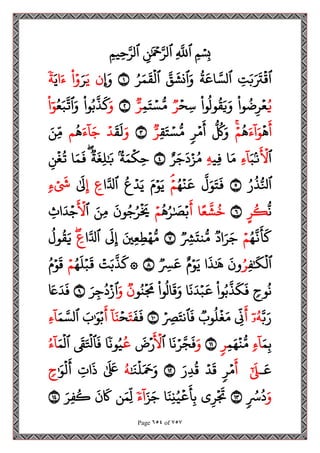 بِسْمِ اِ۬للَّهِ اِ۬لرَّحْمَٰنِ اِ۬لرَّحِيمِ
ٱقْتَرَبَتِ ٱلسَّاعَةُ وَٱنشَقَّ ٱلْقَمَرُ ١ وَإِن يَرَوْاْ ءَايَةٗ
يُعْرِضُواْ وَيَقُولُواْ سِحْرٞ مُّسْتَمِرّٞ ٢ وَكَذَّبُواْ وَٱتَّبَعُوٓاْ
أَهْوَآءَهُمْ وَكُلُّ أَمْرٖ مُّسْتَقِرّٞ ٣ وَلَقَدْ جَآءَهُم مِّنَ
ٱلْأَنۢبَآءِ مَا فِيهِ مُزْدَجَرٌ ٤ حِكْمَةُۢ بَٰلِغَةٞ فَمَا تُغْنِ
ٱلنُّذُرُ ٥ فَتَوَلَّ عَنْهُمْ يَوْمَ يَدْعُ ٱلدَّاعِ إِلَىٰ شَيْءٖ
نُّكُرٍ ٦ خُشَّعًا أَبْصَٰرُهُمْ يَخْرُجُونَ مِنَ ٱلْأَجْدَاثِ
كَأَنَّهُمْ جَرَادٞ مُّنتَشِرٞ ٧ مُّهْطِعِينَ إِلَى ٱلدَّاعِ يَقُولُ
ٱلْكَٰفِرُونَ هَٰذَا يَوْمٌ عَسِرٞ ٨ ۞ كَذَّبَتْ قَبْلَهُمْ قَوْمُ
نُوحٖ فَكَذَّبُواْ عَبْدَنَا وَقَالُواْ مَجْنُونٞ وَٱزْدُجِرَ ٩ فَدَعَا
رَبَّهُۥٓ أَنِّي مَغْلُوبٞ فَٱنتَصِرْ ١٠ فَفَتَحْنَآ أَبْوَٰبَ ٱلسَّمَآءِ
بِمَآءٖ مُّنْهَمِرٖ ١١ وَفَجَّرْنَا ٱلْأَرْضَ عُيُونٗا فَٱلْتَقَى ٱلْمَآءُ
عَلَىٰٓ أَمْرٖ قَدْ قُدِرَ ١٢ وَحَمَلْنَٰهُ عَلَىٰ ذَاتِ أَلْوَٰحٖ
وَدُسُرٖ ١٣ تَجْرِي بِأَعْيُنِنَا جَزَآءٗ لِّمَن كَانَ كُفِرَ ١٤
Page ٦٥٤ of ٧٥٧